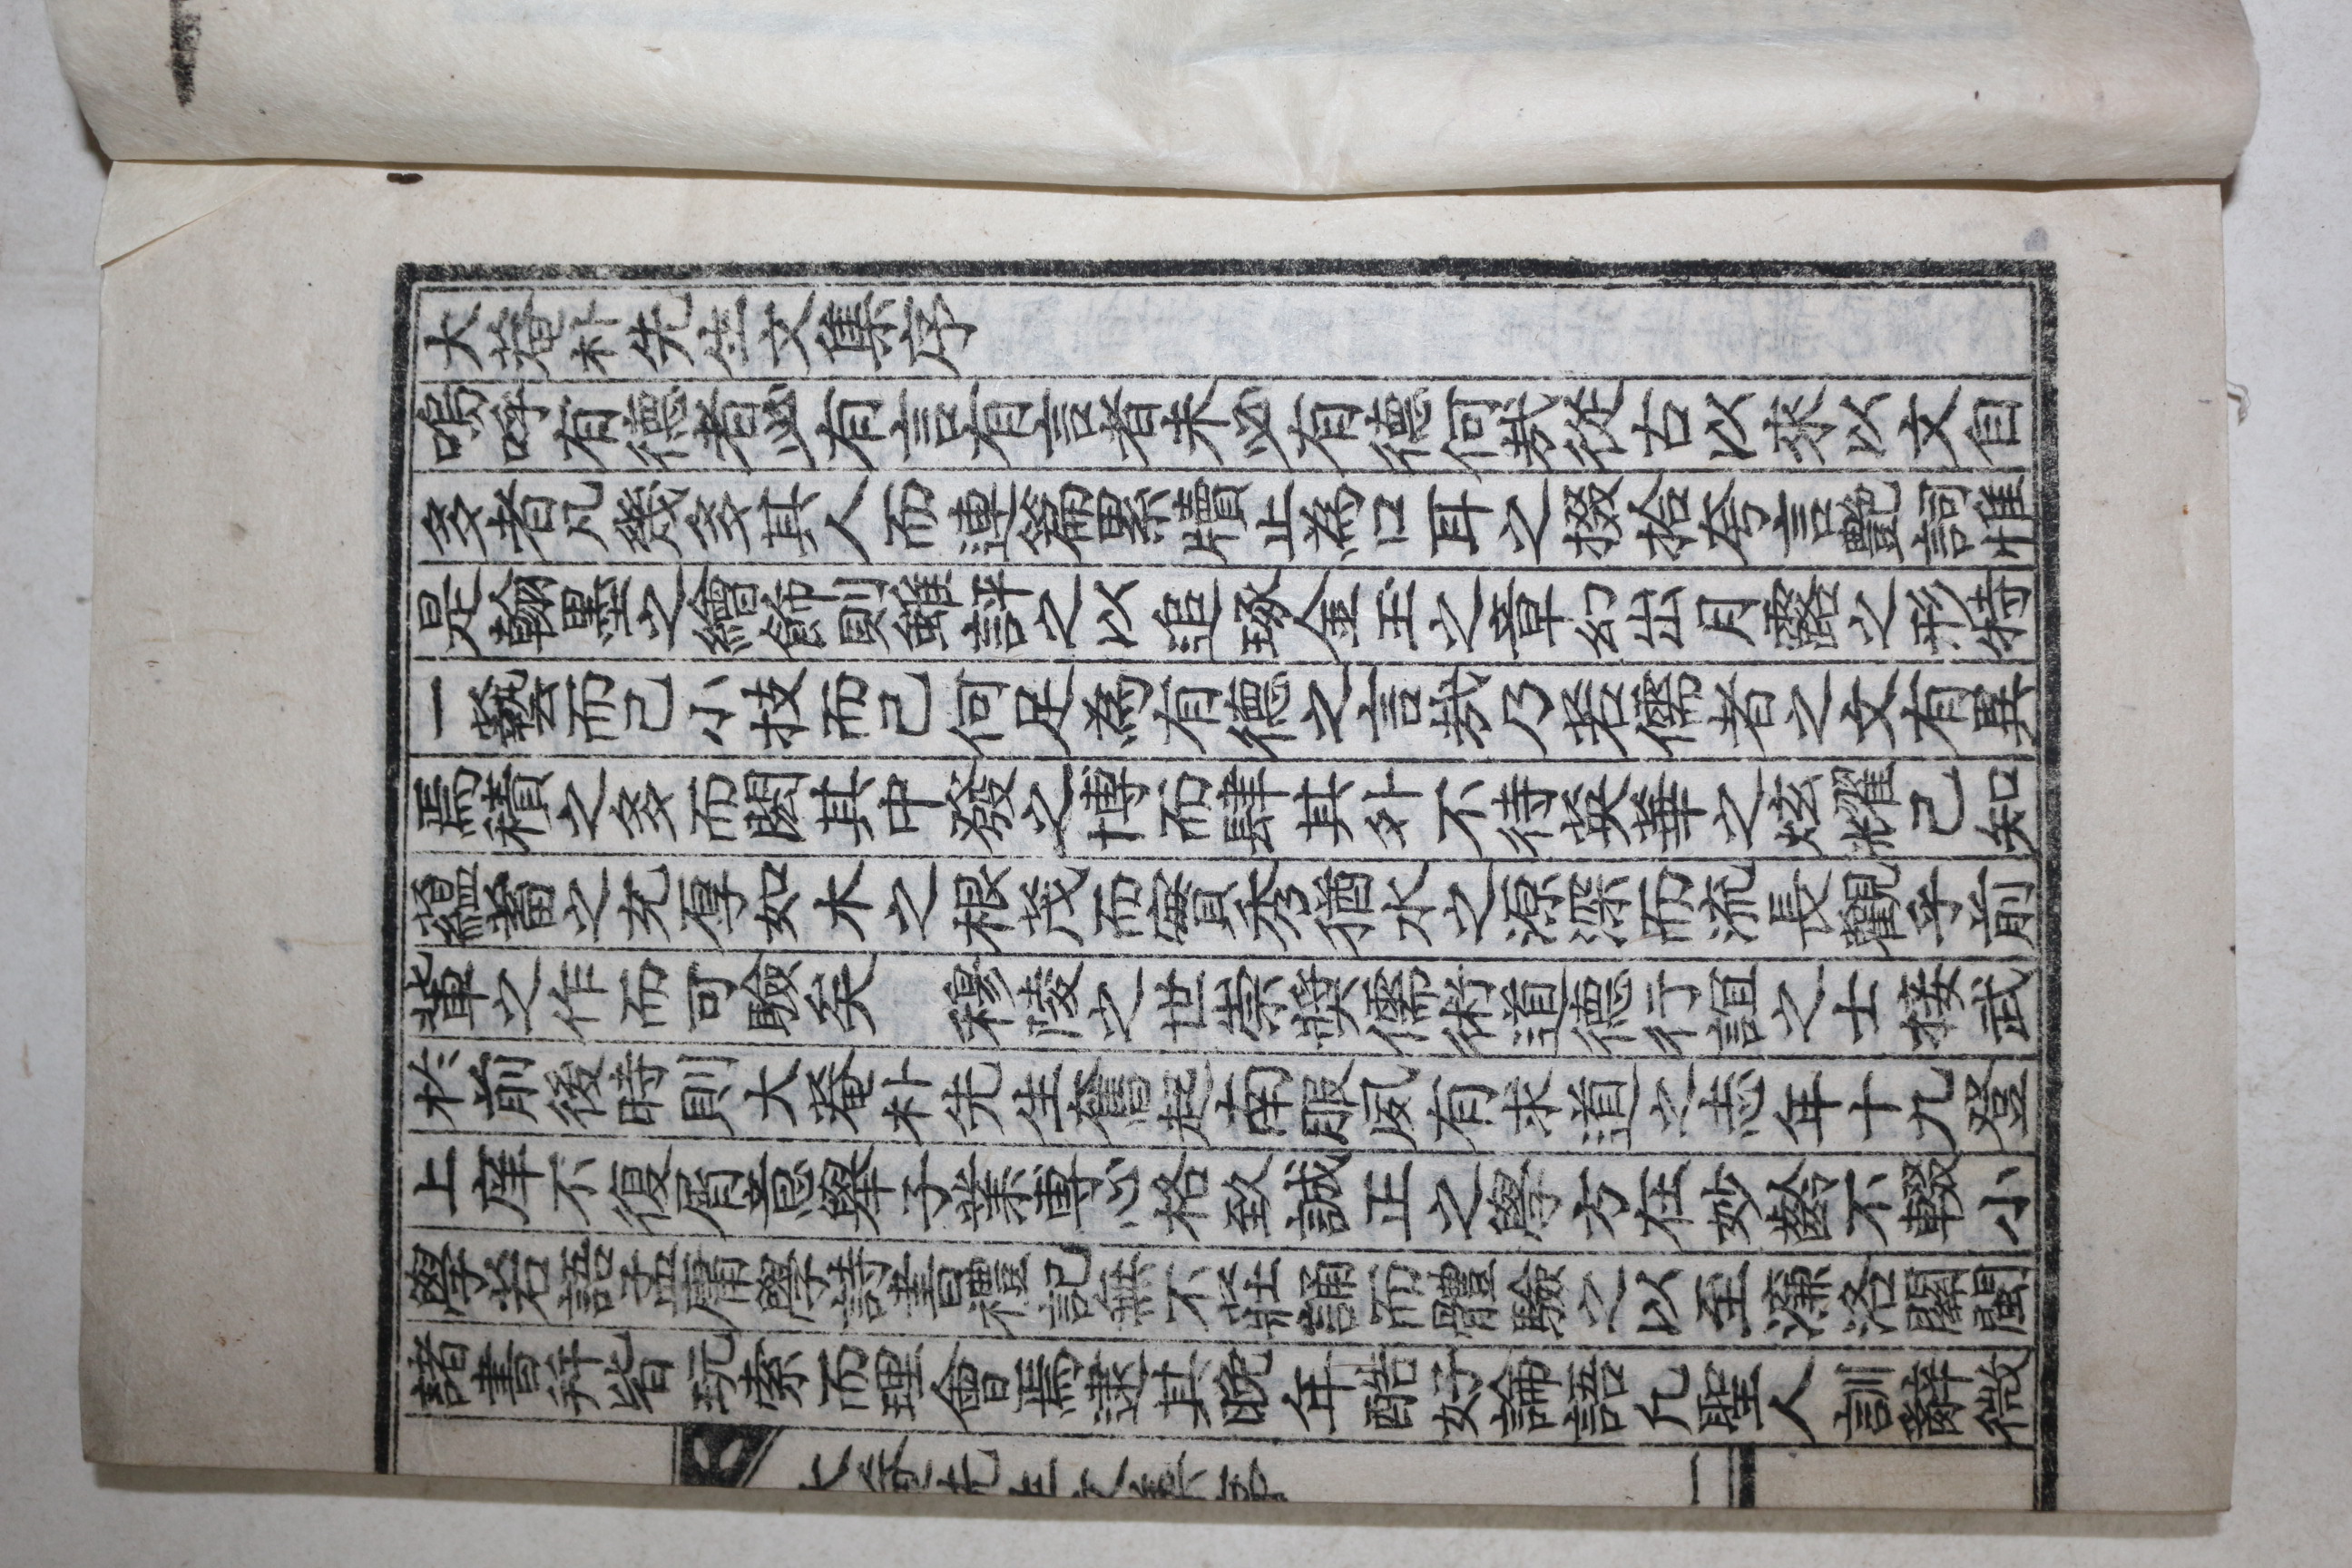 大菴朴先生文集序
嗚呼有德者必有言有言者未必有德何㢤從古以來以文自
多者凡幾多其人而連篇累牘止為口耳之掇拾夸言艶詞惟
是翰墨之繪飾則雖評之以追琢金玉之章幻出月露之形特
一藝而己小技而己何足為有德之言㢤乃若儒者之文有異
焉積之多而閎其中發之博而肆其外不待英華之炫耀己知
蘊蓄之充厚如木之根茂而實秀猶水之源深而流長觀乎前
軰之作而可驗矣　穆陵之世崇奬儒術道德行誼之士接武
於前後時則大菴朴先生奮起南服夙有求道之志年十九登
上庠不復屑意擧子業專心格致誠正之學方在妙齡不輟小
學若語孟庸學詩書禮記無不莊誦而體驗之以至濂洛關閩
諸書幷皆玩索而理會焉逮其晩年酷好論語凡聖人訓辭微
大菴先生文集序
一